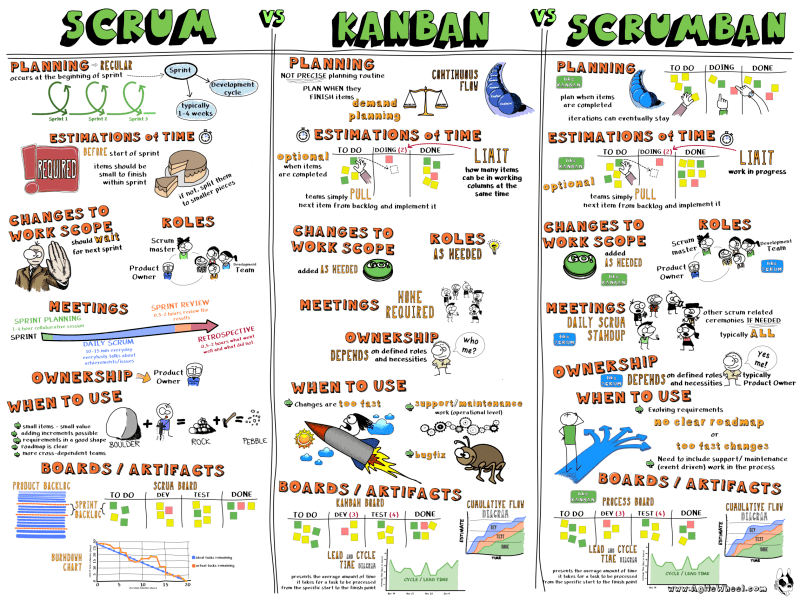 SCRUM
VS
KANBAN
VS
SCRUMBAN
PLANNING - REGULAR
occurs at the beginning of sprint
Sprint
Development
cycle
typically
1-4 weeks
Sprint 1
Sprint 2
Sprint 3
ESTIMATIONS of TIME
REQUIRED
BEFORE start of sprint
items should be
small to finish
within sprint
if not, split them
to smaller pieces
CHANGES TO
WORK SCOPE
should wait
for next sprint
ROLES
Scrum
master
Product
Owner
Development
Team
MEETINGS
SPRINT PLANNING
SPRINT REVIEW
SPRINT
DAILY SCRUM
10-15 min everyday
everybody talks about
achievements/issues
RETROSPECTIVE
0.5-2 hours what went
well and what did not
OWNERSHIP
Product
Owner
WHEN TO USE
small items - small value
adding increments possible
requirements in a good shape
roadmap is clear
more cross-dependent teams
BOULDER
+
=
ROCK
+
=
PEBBLE
BOARDS / ARTIFACTS
PRODUCT BACKLOG
SPRINT
BACKLOG
SCRUM BOARD
TO DO
DEV
TEST
DONE
BURNDOWN
CHART
0
5
10
15
20
PLANNING
NOT PRECISE planning routine
PLAN WHEN they
FINISH items
demand
planning
CONTINUOUS
FLOW
ESTIMATIONS of TIME
optional
when items
are completed
TO DO
DOING (2)
DONE
LIMIT
how many items
can be in working
columns at the
same time
teams simply PULL
next item from backlog and implement it
CHANGES TO
WORK SCOPE
added AS NEEDED
ROLES
AS NEEDED
MEETINGS
NONE
REQUIRED
OWNERSHIP
DEPENDS on defined roles
and necessities
Who
me?
WHEN TO USE
Changes are too fast
support/maintenance
work (operational level)
bugfix
BOARDS / ARTIFACTS
KANBAN BOARD
TO DO
DEV (3)
TEST (4)
DONE
CUMULATIVE FLOW
DIAGRAM
ESTIMATE
DEV
TEST
DONE
TIME
LEAD AND CYCLE
TIME DIAGRAM
presents the average amount of time
it takes for a task to be processed
from the specific start to the finish point
CYCLE / LEAD TIME
PLANNING
like
KANBAN
plan when items
are completed
TO DO
DOING
DONE
iterations can eventually stay
ESTIMATIONS of TIME
like
KANBAN
optional
TO DO
DOING (2)
DONE
LIMIT
work in progress
teams simply PULL
next item from backlog and implement it
CHANGES TO
WORK SCOPE
added
AS NEEDED
like
KANBAN
ROLES
Scrum
master
Product
Owner
Development
Team
like
SCRUM
MEETINGS
DAILY SCRUM
STANDUP
like
SCRUM
other scrum related
ceremonies IF NEEDED
typically ALL
OWNERSHIP
like
SCRUM
DEPENDS on defined roles
and necessities
Yes
me!
typically
Product Owner
WHEN TO USE
Evolving requirements
no clear roadmap
or
too fast changes
Need to include support/ maintenance
(event driven) work in the process
BOARDS / ARTIFACTS
like
KANBAN
PROCESS BOARD
TO DO
DEV (3)
TEST (4)
DONE
CUMULATIVE FLOW
DIAGRAM
ESTIMATE
DEV
TEST
DONE
TIME
LEAD AND CYCLE
TIME DIAGRAM
presents the average amount of time
it takes for a task to be processed
from the specific start to the finish point
CYCLE / LEAD TIME
www.AgileWheel.com